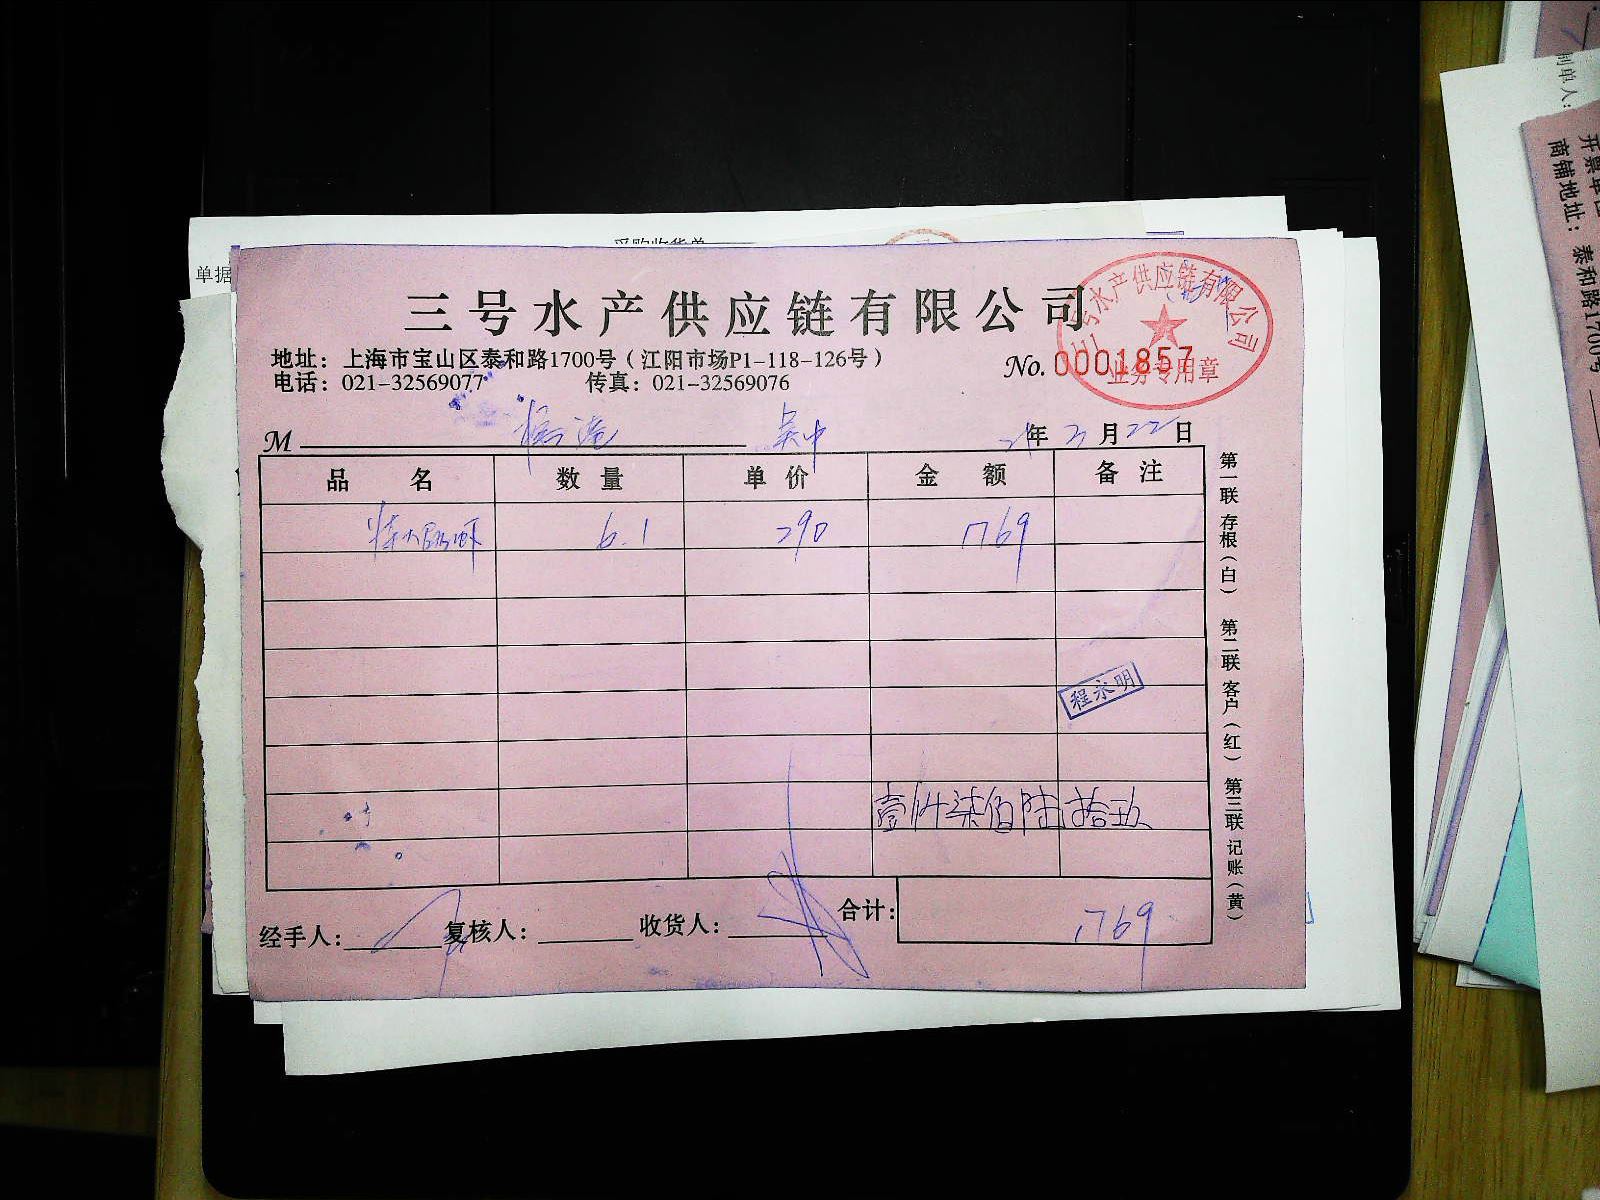 单据
三号水产供应链有限公司
三号水产供应链有限公司
业务专用章
地址：上海市宝山区泰和路1700号（江阳市场P1-118-126号）
电话：021-32569077 传真：021-32569076
No. 0001857
M 吴中 年 月 22 日
品名 数量 单价 金额 备注
特大 虾 6.1 290 1769
程永明
壹仟柒佰陆拾玖
经手人： 复核人： 收货人： 合计： 1769
第一联 存根（白） 第二联 客户（红） 第三联 记账（黄）
制单人：
商铺地址：泰和路1700号